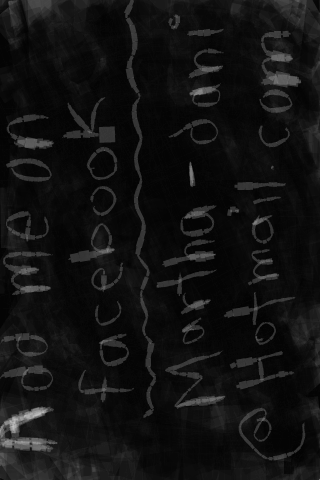 Add me on
facebook
Martha-dani
@Hotmail.com